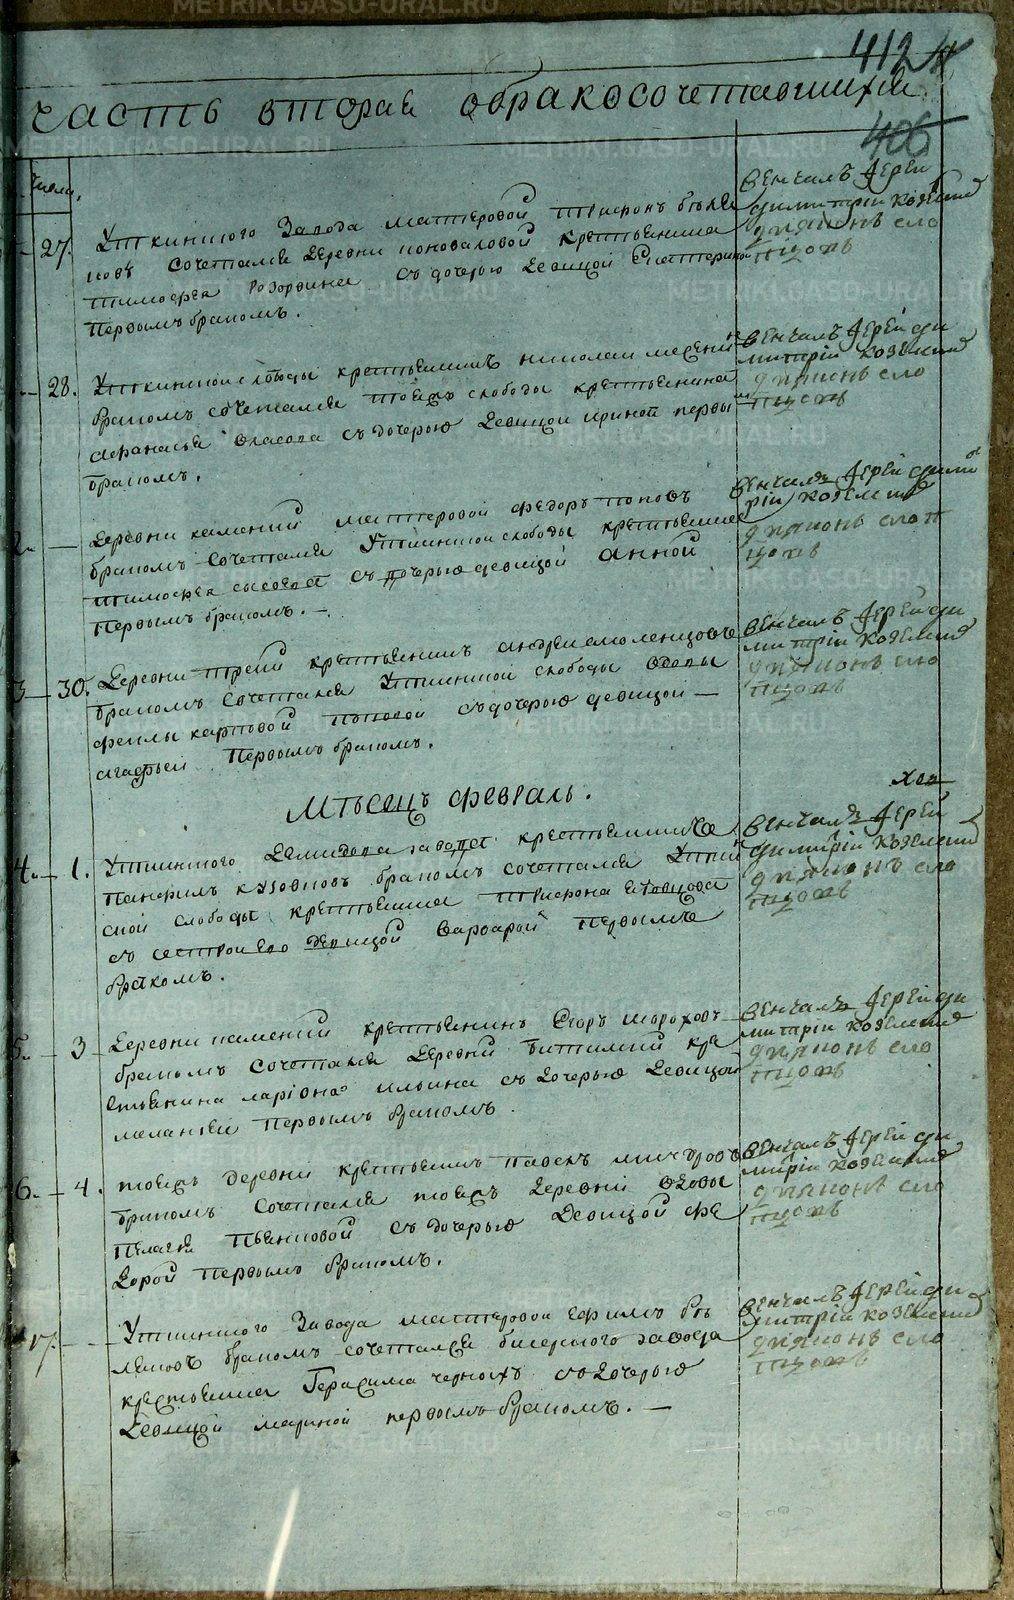 412
часть вторая обракосочетавшихся
406
числа
27.
Уткинского Завода мастеровой
сочеталсЯ деревни коноваловой крестьянина
тимофея съ дочерью девицой Екатериной
Первымъ бракомъ.
венчалъ Іерей
димитрій козелкинъ
дияконъ сло
пцовъ
28.
Уткинской слободы крестьянинъ николаи
бракомъ сочетался тоежъ слободы крестьянина
афанасья власова съ дочерью девицой ириной первы
бракомъ.
венчалъ Іерей ди
митрій козелкин
дияконъ сло
пцовъ
деревни каменки мастеровой федоръ поповъ
бракомъ сочетался Уткинской слободы крестьянина
тимофея сысоева съ дочерью девицой анной
Первымъ бракомъ. —
венчалъ Іерей димит
рій козелкин
дияконъ слоп
цовъ
3 — 30.
деревни треки крестьянинъ андреи смоленцовъ
бракомъ сочетался Уткинской слободы вдовы
феклы карповой поповой съ дочерью девицой —
агафьей Первымъ бракомъ.
венчалъ Іерей ди
митрій козелкин
дияконъ сло
пцовъ
Мѣсецъ февраль.
4. — 1.
Уткинского Демидова завода крестьянинъ
панфилъ кузовновъ бракомъ сочеталсЯ Уткин
ской слободы крестьянина
съ сестрой Его девицой варварой Первымъ
бракомъ.
венчалъ Іерей
димитрій козелкин
дияконъ сло
пцовъ
5. — 3
деревни каменки крестьянинъ Егоръ шороховъ
бракомъ сочетался деревни битимки кре
стьянина ларіона ильина съ дочерью девицой
меланьей первымъ бракомъ.
венчалъ Іерей ди
митрій козелкин
дияконъ сло
пцовъ
6. — 4.
тоежъ деревни крестьянинъ павелъ
бракомъ сочетался тоежъ деревни вдовы
Пелагеи съ дочерью девицой фе
дорой первымъ бракомъ.
венчалъ Іерей ди
митрій козелкин
дияконъ сло
пцовъ
17.
Уткинского Завода мастеровой ефимъ
бракомъ сочеталсЯ бисерского завода
крестьянина Герасима черныхъ съ дочерью
девицой мариной первымъ бракомъ. —
венчалъ Іерей ди
митрій козелкин
дияконъ сло
пцовъ
METRIKI.GASO-URAL.RU